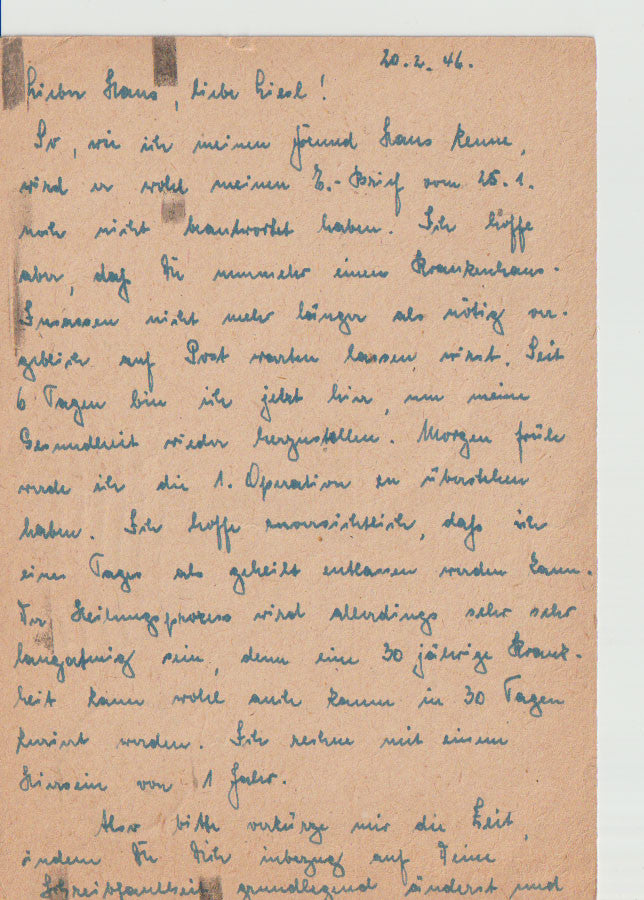 20.2.46.
Lieber Hans, liebe Liesl!
So, wie ich meinen Freund Hans kenne,
wird er wohl meinen E.-Brief vom 25.1.
noch nicht beantwortet haben. Ich hoffe
aber, daß Du nunmehr einen Krankenhaus-
Insassen nicht mehr länger als nötig ver-
geblich auf Post warten lassen wirst. Seit
6 Tagen bin ich jetzt hier, um meine
Gesundheit wieder herzustellen. Morgen früh
werde ich die 1. Operation zu überstehen
haben. Ich hoffe zuversichtlich, daß ich
eines Tages als geheilt entlassen werden kann.
Der Heilungsprozess wird allerdings sehr sehr
langatmig sein, denn eine 30 jährige Krank-
heit kann wohl auch kaum in 30 Tagen
kuriert werden. Ich rechne mit einem
Hiersein von 1 Jahr.
Also bitte verkürze mir die Zeit,
indem Du Dich inbezug auf Deine
Schreibfaulheit grundlegend änderst und